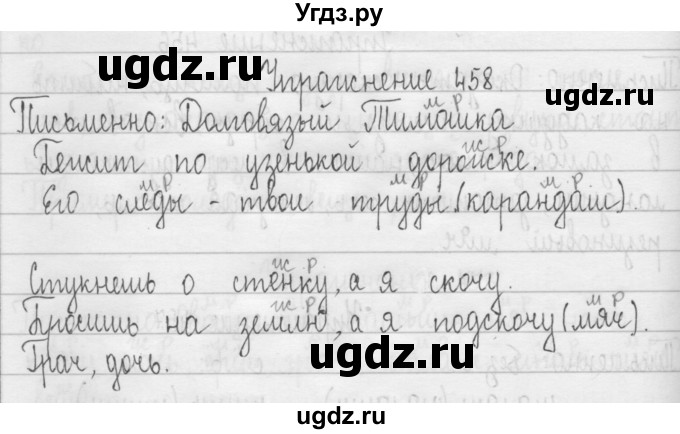 Угдз.ру
Упражнение 458
м р
Письменно: Долговязый Тимошка
ж р
Бежит по узенькой дорожке.
м р м р м р
Его следы - твои труды (карандаш).
ж р
Стукнешь о стенку, а я скочу.
ж р м р
Бросишь на землю, а я подскочу (мяч).
Грач, дочь.
ugdz.ru
ugdz.ru
ugdz.ru
ugdz.ru
ugdz.ru